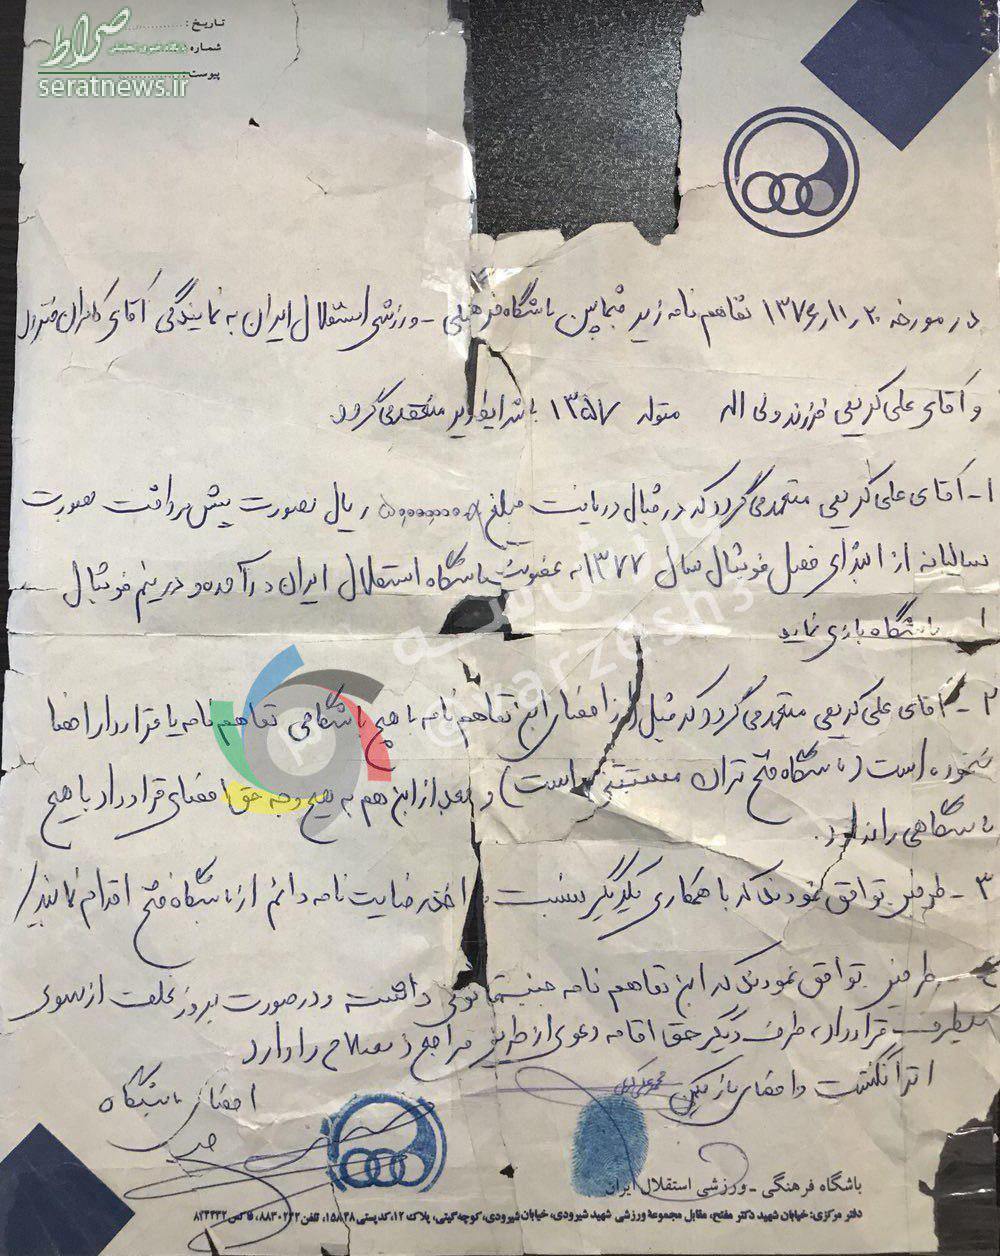 صراط
seratnews.ir
تاریخ :
شماره
پیوست
در مورخه ۲۰ر۱۱ر۱۳۷۶ تفاهم نامه زیر فیمابین باشگاه فرهنگی - ورزشی استقلال ایران به نمایندگی آقای کامران
و آقای علی کریمی فرزند ولی اله متولد ۱۳۵۷ با شرایط زیر منعقد می گردد
۱- آقای علی کریمی متعهد می گردد که در قبال دریافت مبلغ ریال بصورت پیش پرداخت بصورت
سالیانه از ابتدای فصل فوتبال سال ۱۳۷۷ به عضویت باشگاه استقلال ایران درآمده و در تیم فوتبال
باشگاه بازی نماید
۲- آقای علی کریمی متعهد می گردد که قبل از امضای این تفاهم نامه با هیچ باشگاهی تفاهم نامه یا قرارداد امضا
ننموده است (باشگاه فتح تهران مستثنی است) و بعد از این هم به هیچ وجه حق امضای قرارداد با هیچ
باشگاهی را ندارد.
۳- طرفین توافق نمودند که با همکاری یکدیگر نسبت به اخذ رضایت نامه دائم از باشگاه فتح اقدام نمایند
۴- طرفین توافق نمودند که این تفاهم نامه جنبه داشته و در صورت بروز تخلف از سوی
یکطرف قرارداد، طرف دیگر حق اقامه دعوی از طریق مراجع ذیصلاح را دارد
اثر انگشت و امضای بازیکن
امضای باشگاه
ورزش سه
@varzesh3
باشگاه فرهنگی - ورزشی استقلال ایران
دفتر مرکزی: خیابان شهید دکتر مفتح، مقابل مجموعهٔ ورزشی شهید شیرودی، خیابان شیرودی، کوچه گیتی، پلاک ۱۲، کدپستی ۱۵۸۴۸، تلفن ۸۸۳۰۲۴۲، فاکس ۸۲۴۴۳۲